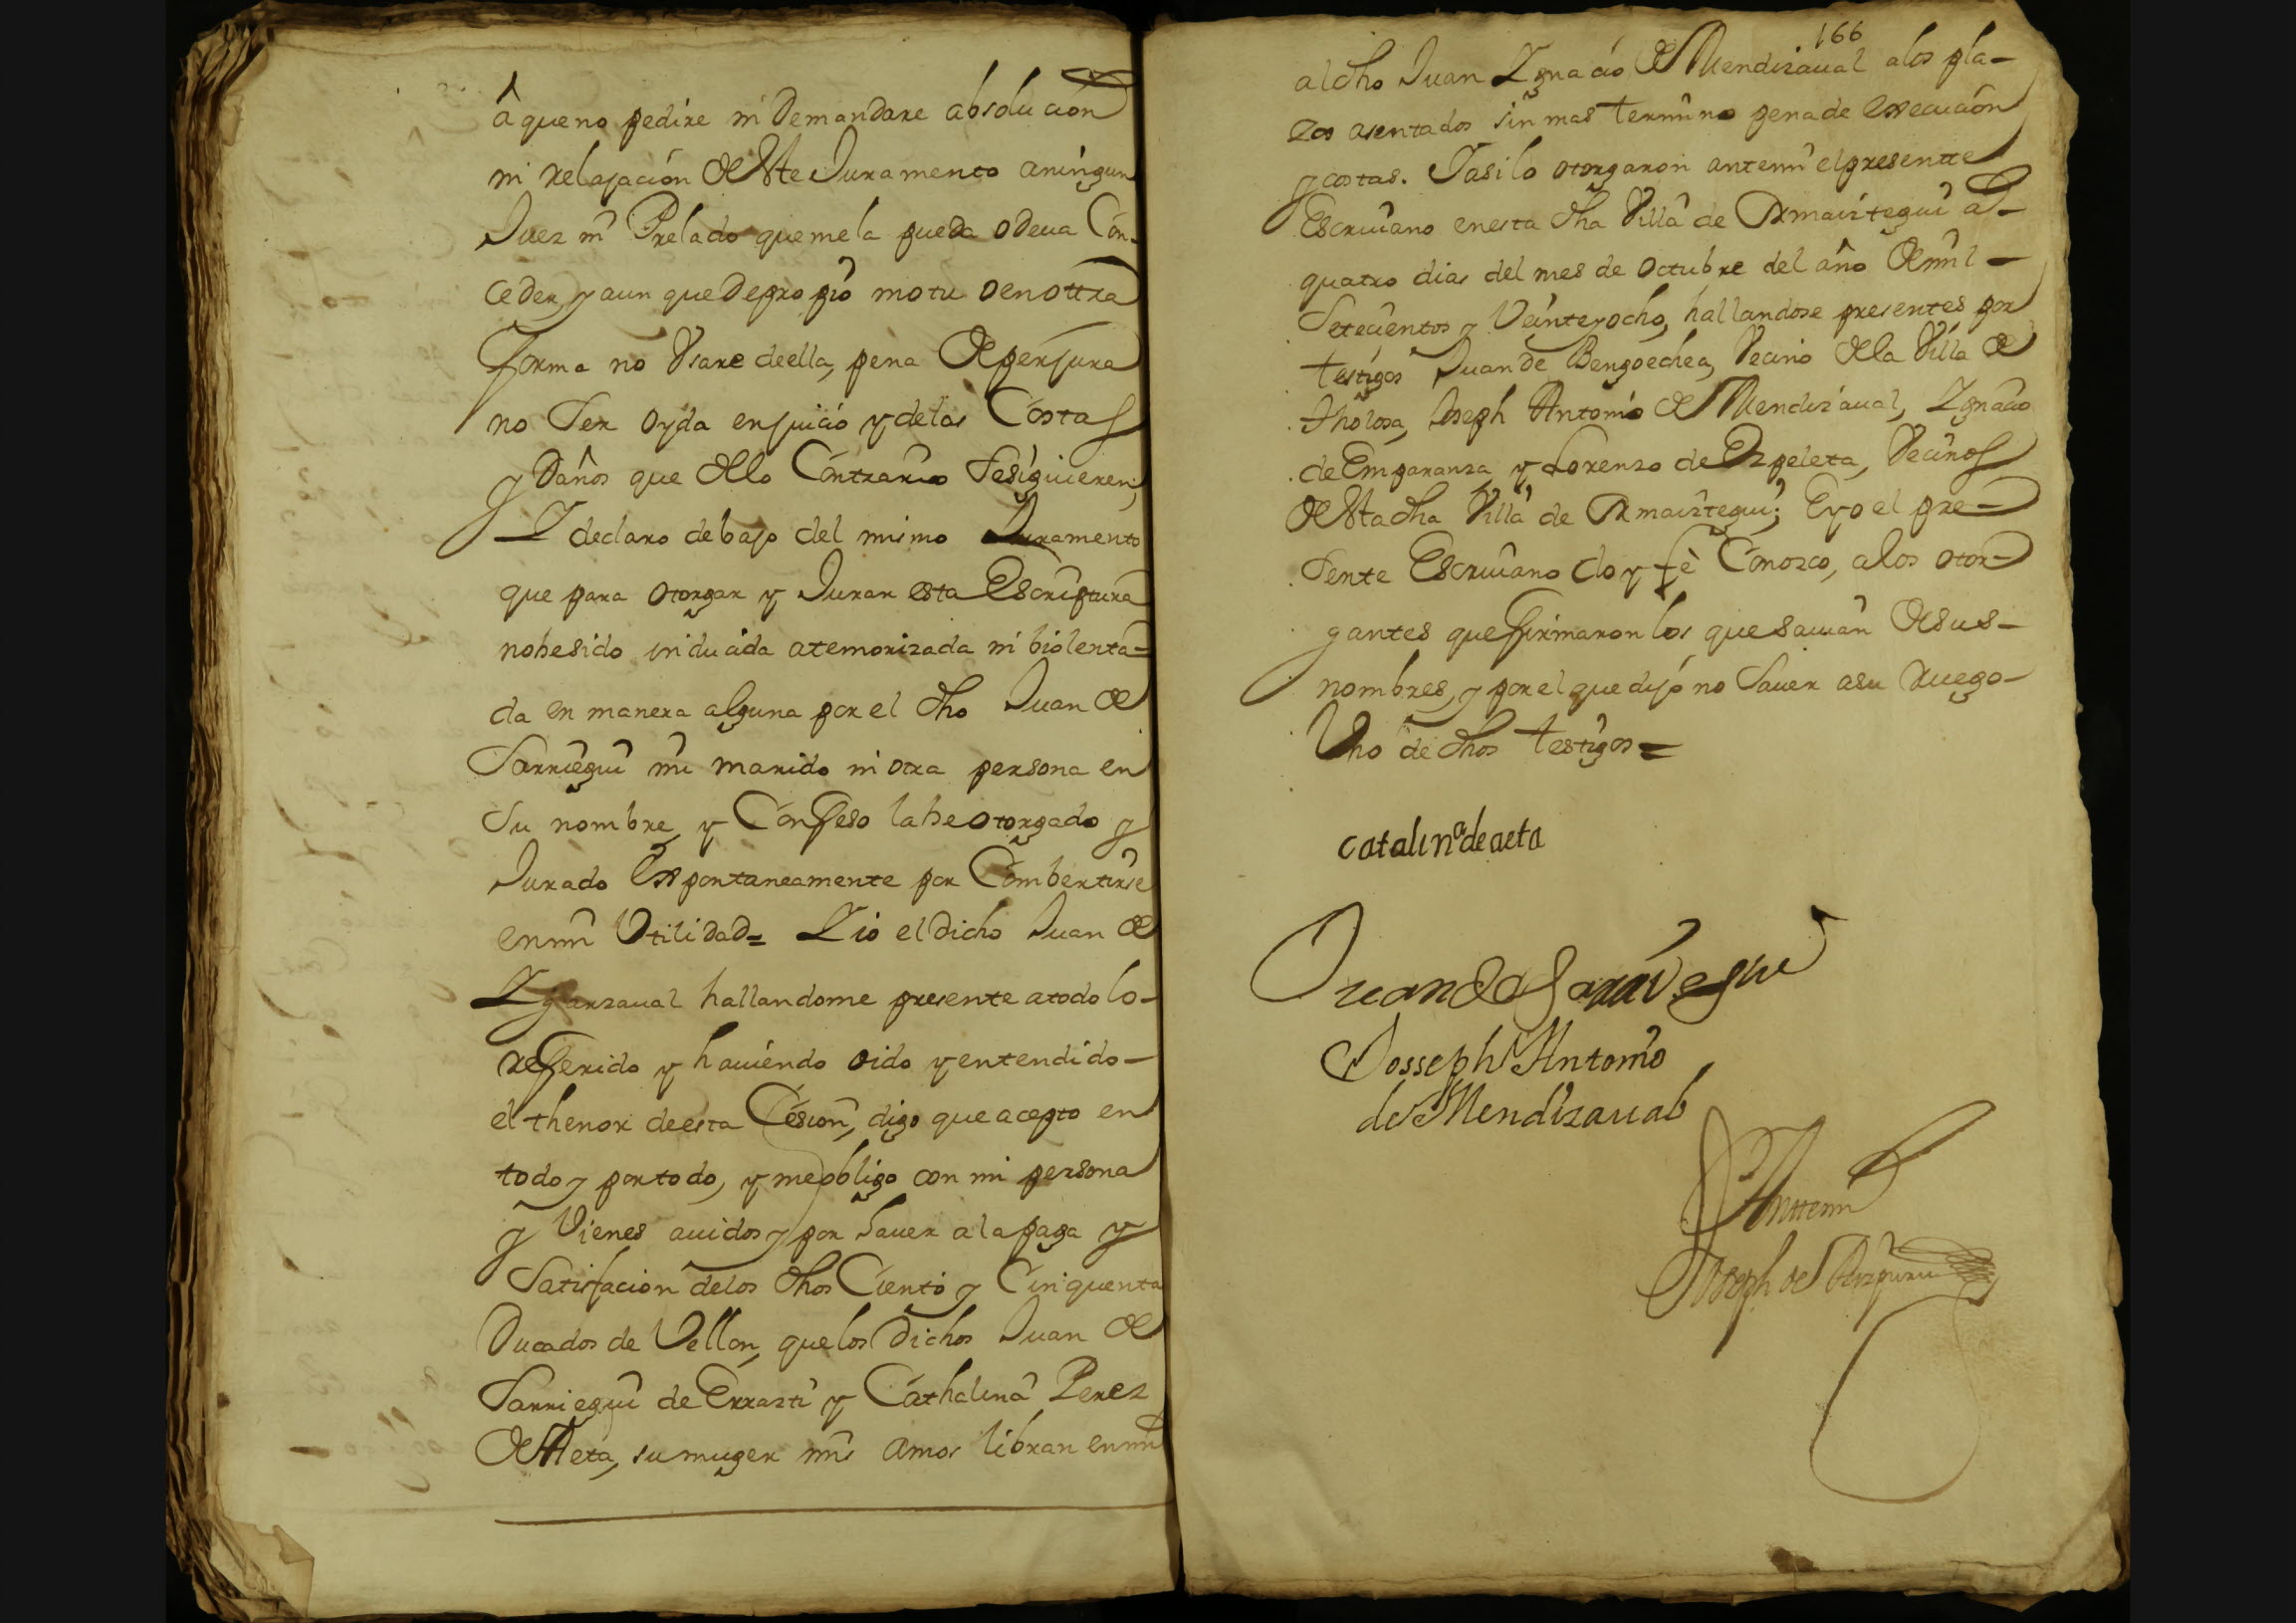 â que no pedire ni Demandare absolucion
ni relajación de este Juramento a ningun
Juez ni Prelado que me la pueda o deua Con-
ceder, y aun que de propio motu o en ottra
forma no Vsare de ella, pena de perjura
no Ser oyda en juicio y de las Costas
y Daños que de lo Contrario Se siguieren;
Y declaro debajo del mismo Juramento
que para otorgar y Jurar esta Escriptura
no he sido inducida atemorizada ni biolenta=
da en manera alguna por el dho Juan de
Sarriegui mi marido ni otra persona en
Su nombre, y Confieso la he otorgado y
Jurado Expontaneamente por Combertirse
en mi Vtilidad= Y io el Dicho Juan de
Ygarzaual hallandome presente a todo lo-
referido y hauiendo oido y entendido-
el thenor de esta Cesion, digo que acepto en
todo y por todo, y me obligo con mi persona
y Vienes auidos y por hauer a la paga y
Satisfacion de los dhos Ciento y Cinquenta
Ducados de Vellon, que los Dichos Juan de
Sarriegui de Errazti y Cathalina Perez
de Aeta, su muger mis amos libran en mi
166
al dho Juan Ygnacio de Mendizaual a los pla-
zos asentados sin mas termino pena de execucion
y costas. Y asi lo otorgaron ante mi el presentte
Escriuano en esta dha Villa de Azmaiztegui a-
quatro dias del mes de octubre del año de mil-
Setecientos y Veinte y ocho, hallandose presentes por
testigos Juan de Bengoechea, Vecino de la Villa de
Tholosa, Joseph Antonio de Mendizaual, Ygnacio
de Emparanza, y Lorenzo de Ezpeleta, Vecinos
de esta dha Villa de Azmaiztegui; E yo el pre-
sente Escriuano doy fè Conozco, a los otor-
gantes que firmaron los que sauian de sus-
nombres, y por el que dijo no Sauer a su Ruego-
Vno de dhos testigos=
catalinª de aeta
Juan de Sarriegui
Josseph Antonio
de Mendizaual
Antte mi
Joseph de